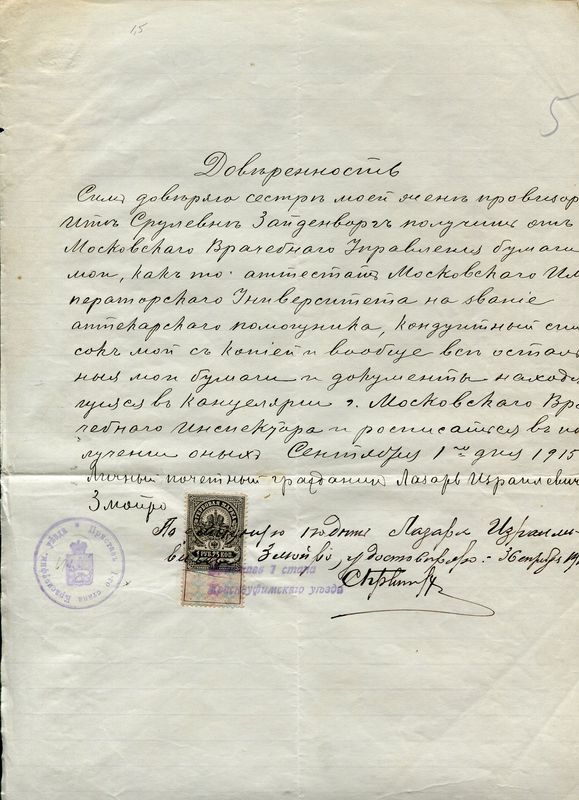 15
5
Довѣренность
Симъ довѣряю сестрѣ моей женѣ провизор
Итѣ Срулевнѣ Зайденваргъ получить отъ
Московскаго Врачебнаго Управленія бумаги
мои, какъ то: аттестатъ Московскаго Им
ператорскаго Университета на званіе
аптекарскаго помощника, кондуитный спи
сокъ мой съ копіей и вообще всѣ осталь
ныя мои бумаги и документы находя
щіяся въ канцеляріи г. Московскаго Вра
чебнаго Инспектора и росписаться въ по
лученіи оныхъ Сентября 1го дня 1915
Личный почетный гражданинъ Лазарь Израилевичъ
Змойро
По подписи Лазаря Израиле-
Змойро удостовѣряю:-
1 РУБ. 25 КОП.
1 стана
Красноуфимскаго уѣзда
Красноуфим. уѣзда Приставъ 1-го стана